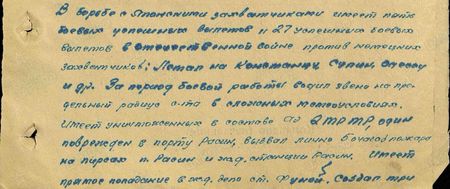 В борьбе с Японскими захватчиками имеет пять
боевых успешных вылетов и 27 успешных боевых
вылетов в отечественной войне против немецких
захватчиков; Летал на Констанцу, Сулин, Одессу
и др. За период боевой работы водил звено на пре-
дельный радиус с-та в сложных метеоусловиях.
Имеет уничтоженных в составе 2 ТР ТР, один
поврежден в порту Расин, вызвал лично 6 очагов пожара
на пирсах п. Расин и ж.д. станции Расин. Имеет
прямое попадание в ж.д. депо ст. Фуней. Создал три